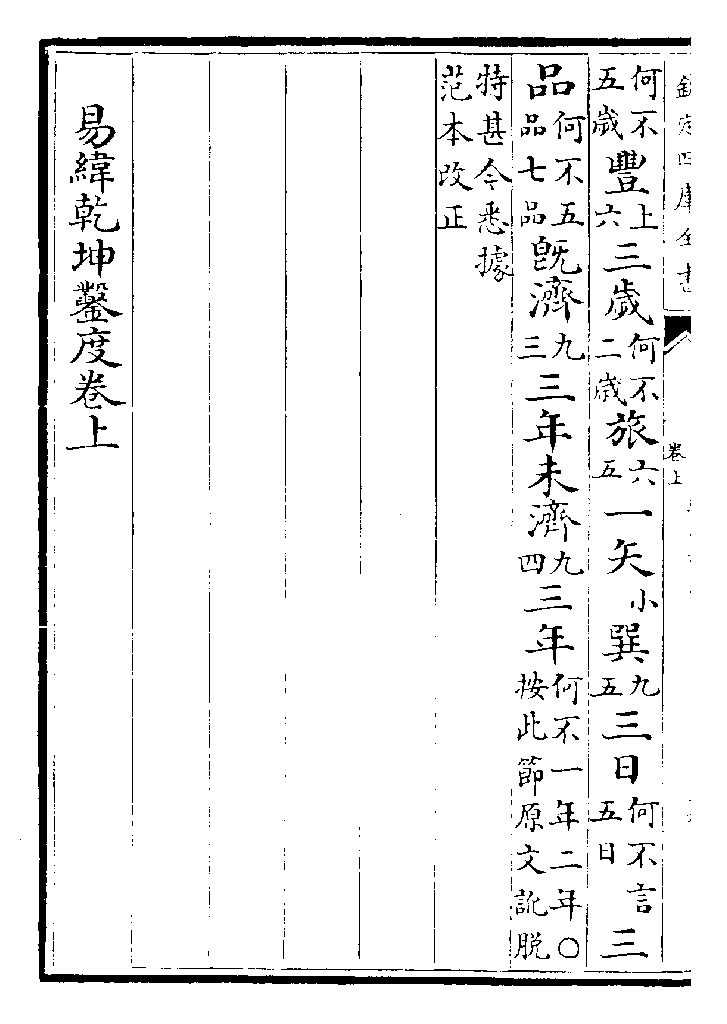 欽定四庫全書
卷上
何不五歲豐上六三歲何不二歲旅六五一矢小巽九五三日何不言五日三
品何不五品七品旣濟九三三年未濟九四三年何不一年二年○按此節原文訛脫
特甚今悉據范本改正
易緯乾坤鑿度卷上